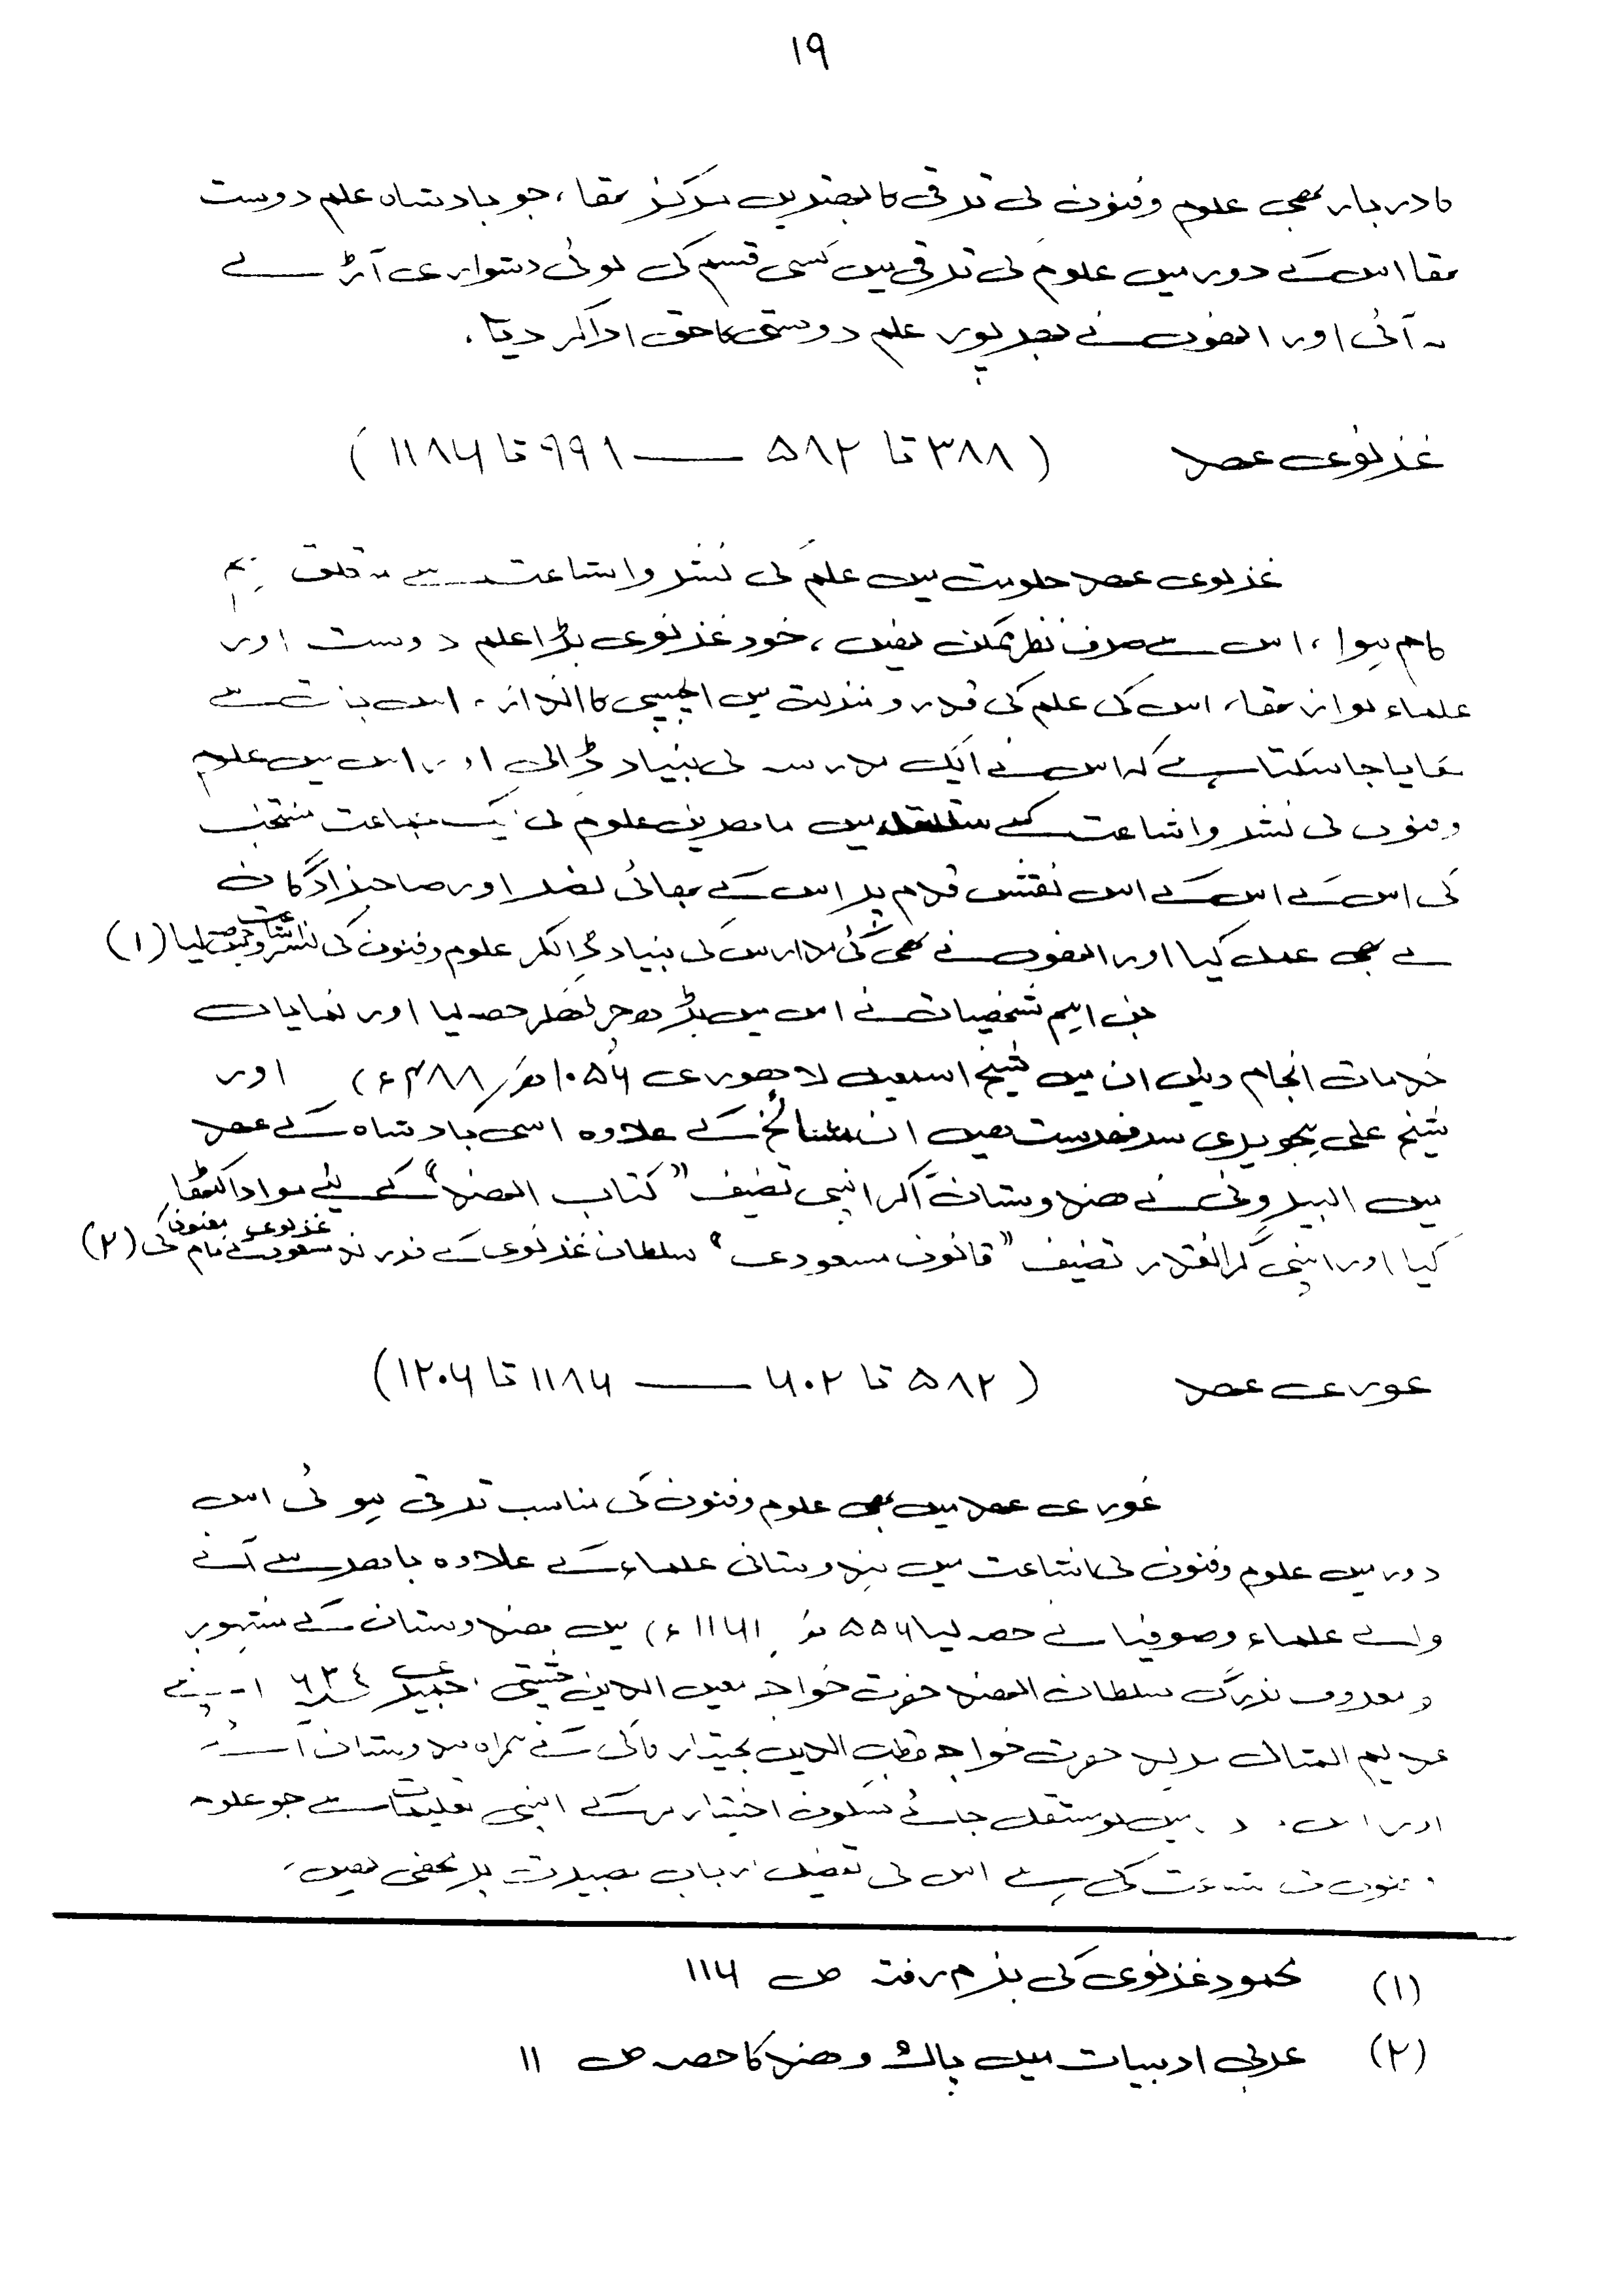 ۱۹
کا دربار بھی علوم وفنون کی ترقی کا بہترین مرکز تھا، جو بادشاہ علم دوست
تھا اس کے دور میں علوم کی ترقی میں کسی قسم کی کوئی دشواری آڑے
نہ آئی اور انھوں نے بھرپور علم دوستی کا حق ادا کر دیا۔
غزنوی عہد (۳۸۸ تا ۵۸۲ — ۹۹۱ تا ۱۱۸۶)
غزنوی عہد حکومت میں علم کی نشر واشاعت سے متعلق
کام ہوا، اس سے صرف نظر ممکن نہیں، خود غزنوی بڑا علم دوست اور
علماء نواز تھا، اس کی علم کی قدر و منزلت میں دلچسپی کا انداز اس بات سے
لگایا جا سکتا ہے کہ اس نے ایک مدرسہ کی بنیاد ڈالی اور اس میں علوم
وفنون کی نشر واشاعت کے سلسلہ میں ماہرین علوم کی ایک جماعت منتخب
کی اس کے اس کے اس نقش قدم پر اس کے بھائی نصر اور صاحبزادگان
نے بھی عمل کیا اور انھوں نے بھی کئی مدارس کی بنیاد ڈالکر علوم وفنون کی نشر واشاعت میں حصہ لیا (۱)
جن اہم شخصیات نے اس میں بڑھ چڑھکر حصہ لیا اور نمایاں
خدمات انجام دیں ان میں شیخ اسمعیل لاھوری ۱۰۵۶ھ/۴۸۸ء) اور
شیخ علی ہجویری سر فہرست ہیں ان مشائخ کے علاوہ اسی بادشاہ کے عہد
میں البیرونی نے ھندوستان آکر اپنی تصنیف "کتاب الھند" کے لیے مواد اکٹھا
کیا اور اپنی گرانقدر تصنیف "قانون مسعودی" سلطان غزنوی کے فرزند مسعود غزنوی کے نام معنون کی (۲)
غوری عہد (۵۸۲ تا ۶۰۲ — ۱۱۸۶ تا ۱۲۰۶)
غوری عہد میں بھی علوم وفنون کی مناسب ترقی ہوئی اس
دور میں علوم وفنون کی اشاعت میں ہندوستانی علماء کے علاوہ باھر سے آنے
والے علماء وصوفیا نے حصہ لیا ۵۵۶ھ (۱۱۶۱ء) میں ھندوستان کے مشہور
و معروف بزرگ سلطان الھند حضرت خواجہ معین الدین چشتی اجمیری ۶۳۴ اپنے
عدیم المثال مرید حضرت خواجہ قطب الدین بختیار کاکی کے ہمراہ ہندوستان آئے
اور اس میں مستقل جائے سکون اختیار کر کے اپنی تعلیمات سے جو علوم
وفنون کی خدمت کی ہے اس کی تفصیل ارباب بصیرت پر مخفی نہیں،
(۱) محمود غزنوی کی بزم رفتہ ص ۱۱۶
(۲) عربی ادبیات میں پاک و ھند کا حصہ ص ۱۱